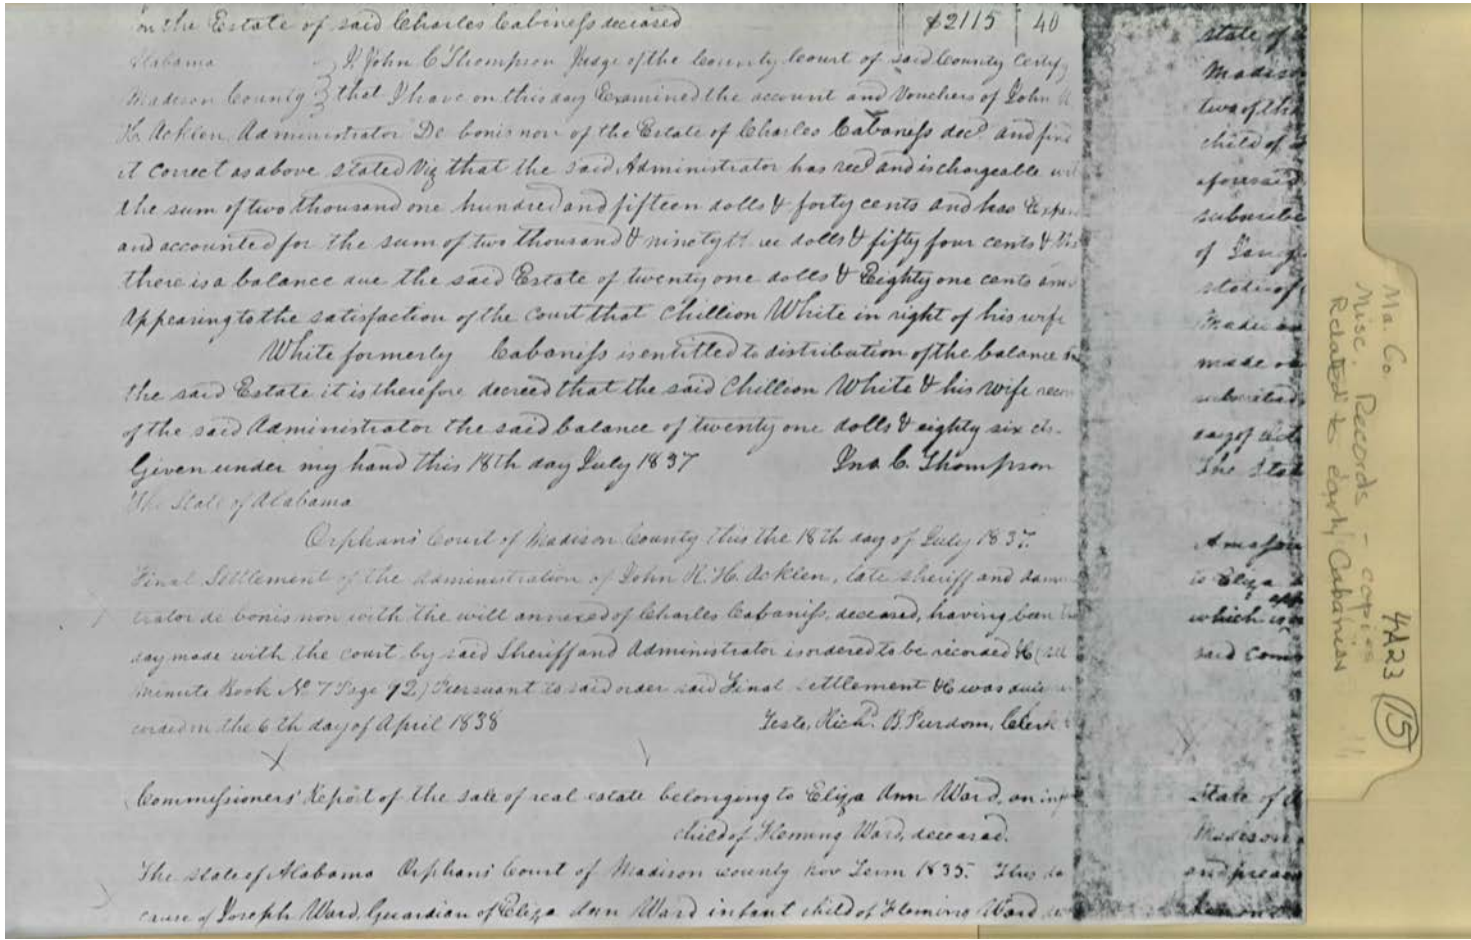 in the Estate of said Charles Cabiness deceased $2115 40
Alabama } I John C Thompson Judge of the County Court of said County Certify
Madison County } that I have on this day Examined the account and Vouchers of John
H. Acklen Administrator De bonis non of the Estate of Charles Cabaness decd. and find
it correct as above stated Viz that the said Administrator has recd and is chargeable
the sum of two thousand one hundred and fifteen dolls & forty cents and has
and accounted for the sum of two thousand & ninety three dolls & fifty four cents &
there is a balance due the said Estate of twenty one dolls & Eighty one cents
Appearing to the satisfaction of the Court that Chillion White in right of his wife
White formerly Cabaniss is entitled to distribution of the balance
the said Estate it is therefore decreed that the said Chillion White & his wife
of the said Administrator the said balance of twenty one dolls & eighty six cts.
Given under my hand this 18th day July 1837 Jno. C. Thompson
The State of Alabama
Orphans' Court of Madison County this the 18th day of July 1837.
Final Settlement of the administration of John R. H. Acklen, late sheriff and
trator de bonis non with the will annexed of Charles Cabaniss, deceased, having been
day made with the court by said Sheriff and Administrator is ordered to be recorded &c (
Minute Book No 7 Page 92) Pursuant to said order said Final settlement &c was
corded on the 6th day of April 1838 Teste, Richd. B. Purdom, Clerk
Commissioners' Report of the sale of real estate belonging to Eliza Ann Ward, an
child of Fleming Ward, deceased.
The state of Alabama Orphans' Court of Madison County Nov Term 1835. This
cause of Joseph Ward, Guardian of Eliza Ann Ward infant child of Fleming Ward
state of
Madison
two of the
child of
aforesaid
subscribe
of
state of
made
day of
The Sta
is Eliza
which is
said Com
State of
Madison
Ma. Co. Records - copies
Misc.
Related to early Cabaniss
4A23 (15)